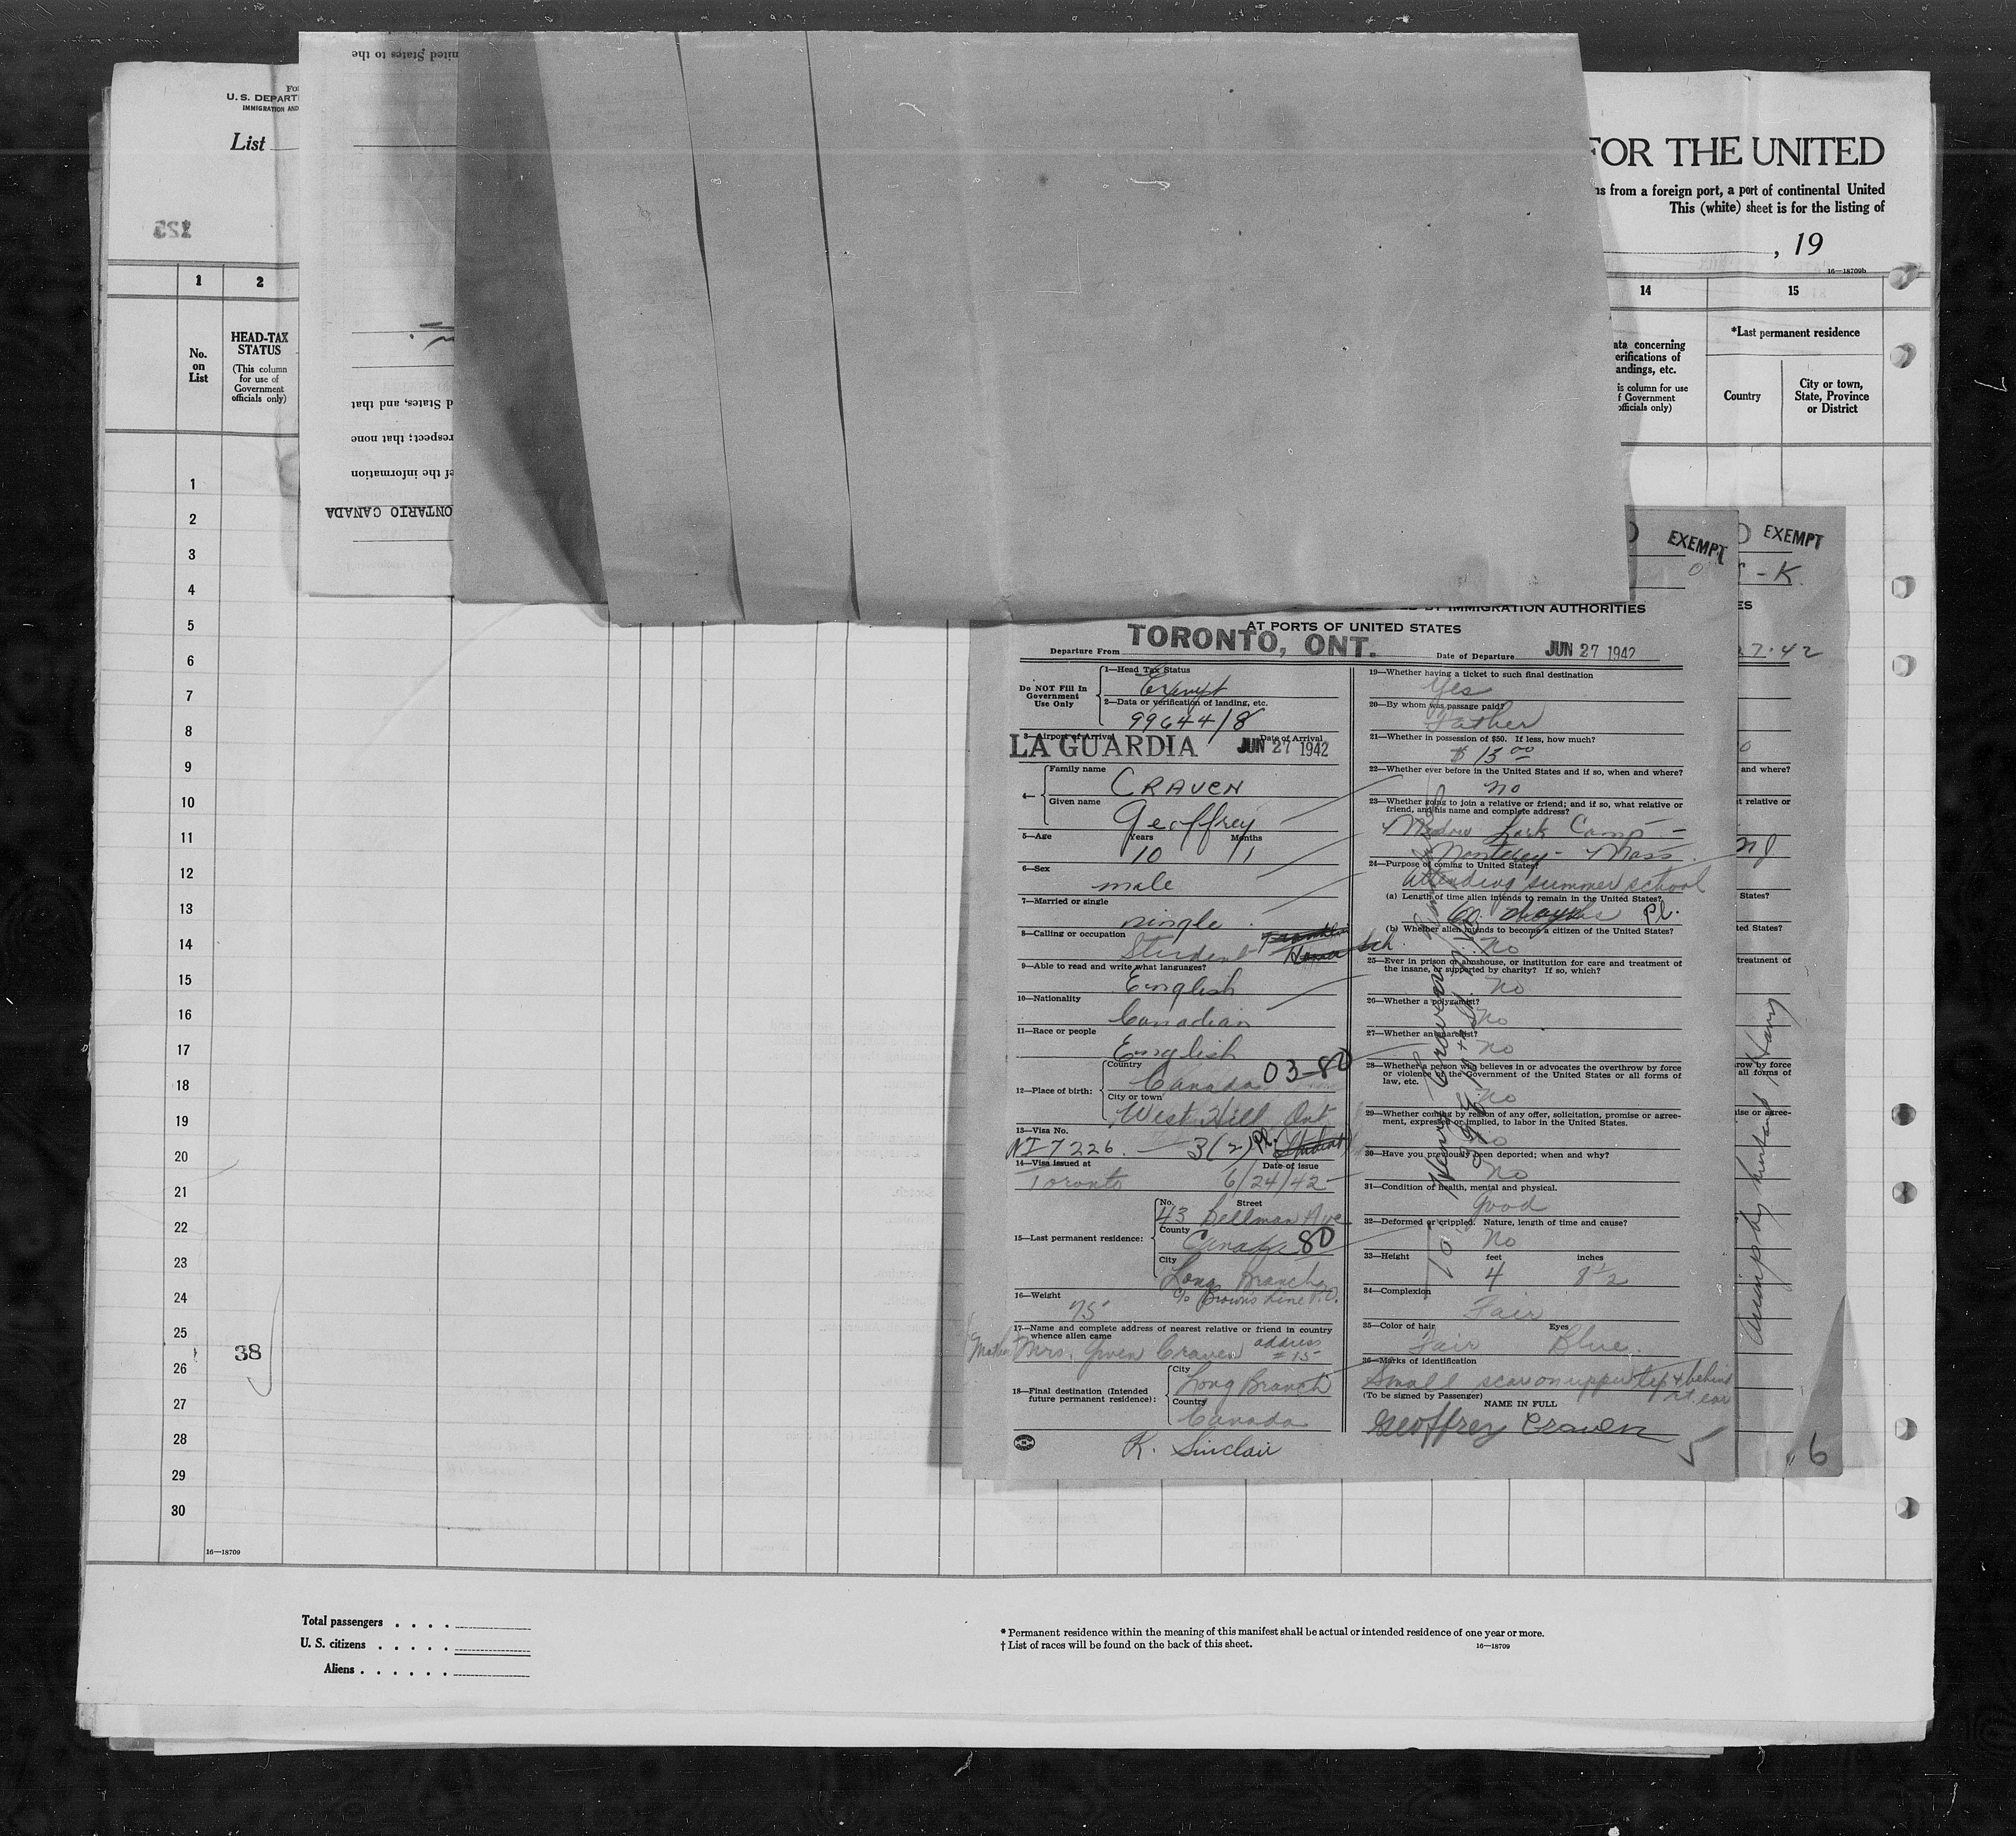 U. S. DEPARTM
IMMIGRATION AND
List
123
nited States to the
d States, and that
respect; that none
ef the information
ONTARIO CANADA
FOR THE UNITED
ns from a foreign port, a port of continental United
This (white) sheet is for the listing of
, 19
16—18709b
1
2
14
15
No.
on
List
HEAD-TAX
STATUS
(This column
for use of
Government
officials only)
ata concerning
erifications of
andings, etc.
is column for use
f Government
officials only)
*Last permanent residence
Country
City or town,
State, Province
or District
1
2
3
4
5
6
7
8
9
10
11
12
13
14
15
16
17
18
19
20
21
22
23
24
25
26
27
28
29
30
38
16—18709
EXEMPT
EXEMPT
- K.
IMMIGRATION AUTHORITIES
AT PORTS OF UNITED STATES
Departure From TORONTO, ONT.
Date of Departure JUN 27 1942
Do NOT Fill In
Government
Use Only
1—Head Tax Status
Exempt
2—Data or verification of landing, etc.
99644/8
3—Airport of Arrival
Date of Arrival
LA GUARDIA JUN 27 1942
4—
Family name
CRAVEN
Given name
Geoffrey
5—Age Years Months
10 11
6—Sex
male
7—Married or single
single
8—Calling or occupation
Student
9—Able to read and write what languages?
English
10—Nationality
Canadian
11—Race or people
English
12—Place of birth:
Country
Canada 03-80
City or town
West Hill Ont
13—Visa No.
NI 7226. — 3(2) Pl. Student
14—Visa issued at Date of issue
Toronto 6/24/42
15—Last permanent residence:
No. Street
43 Lellman Ave
County
Canada 80
City
Long Branch
c/o Browns Line P.O.
16—Weight
75
17—Name and complete address of nearest relative or friend in country
whence alien came
Mother Mrs. Gwen Craven address
# 15
18—Final destination (Intended
future permanent residence):
City
Long Branch
Country
Canada
K. Sinclair
19—Whether having a ticket to such final destination
Yes
20—By whom was passage paid?
Father
21—Whether in possession of $50. If less, how much?
$ 13 00
22—Whether ever before in the United States and if so, when and where?
no
23—Whether going to join a relative or friend; and if so, what relative or
friend, and his name and complete address?
Meadow Lark Camp -
Monterey - Mass.
24—Purpose of coming to United States?
Attending summer school
(a) Length of time alien intends to remain in the United States?
60 days Pl.
(b) Whether alien intends to become a citizen of the United States?
No
25—Ever in prison or almshouse, or institution for care and treatment of
the insane, or supported by charity? If so, which?
No
26—Whether a polygamist?
No
27—Whether an anarchist?
No
28—Whether a person who believes in or advocates the overthrow by force
or violence of the Government of the United States or all forms of
law, etc.
No
29—Whether coming by reason of any offer, solicitation, promise or agree-
ment, expressed or implied, to labor in the United States.
No
30—Have you previously been deported; when and why?
No
31—Condition of health, mental and physical.
good
32—Deformed or crippled. Nature, length of time and cause?
No
33—Height feet inches
4 8 1/2
34—Complexion
Fair
35—Color of hair Eyes
Fair Blue.
36—Marks of identification
Small scar on upper lip & behind
rt. ear
(To be signed by Passenger)
NAME IN FULL
Geoffrey Craven
5
27·42
and where?
t relative or
States?
ted States?
treatment of
row by force
all forms of
ise or agree-
husband Harry
6
Total passengers
U. S. citizens
Aliens
* Permanent residence within the meaning of this manifest shall be actual or intended residence of one year or more.
† List of races will be found on the back of this sheet.
16—18709